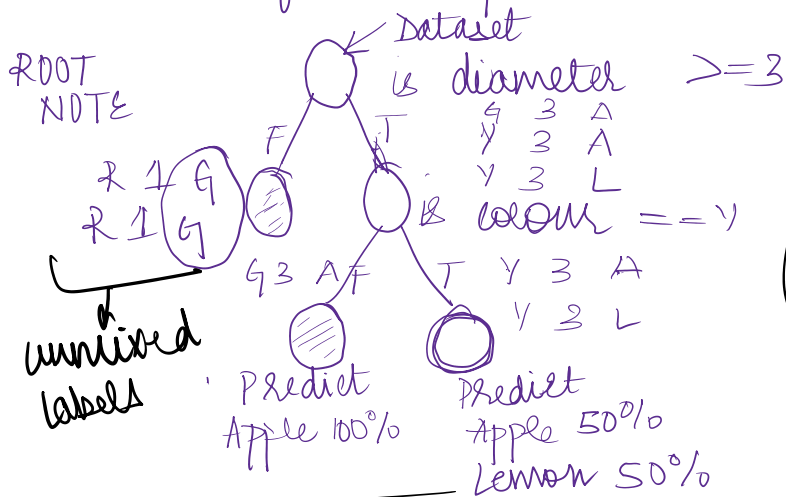 Dataset
ROOT
NOTE
is diameter >=3
G 3 A
F T Y 3 A
R 1 G Y 3 L
R 1 G is colour ==Y
G3 A F T Y 3 A
Y 3 L
unmixed
labels
Predict
Apple 100%
Predict
Apple 50%
Lemon 50%